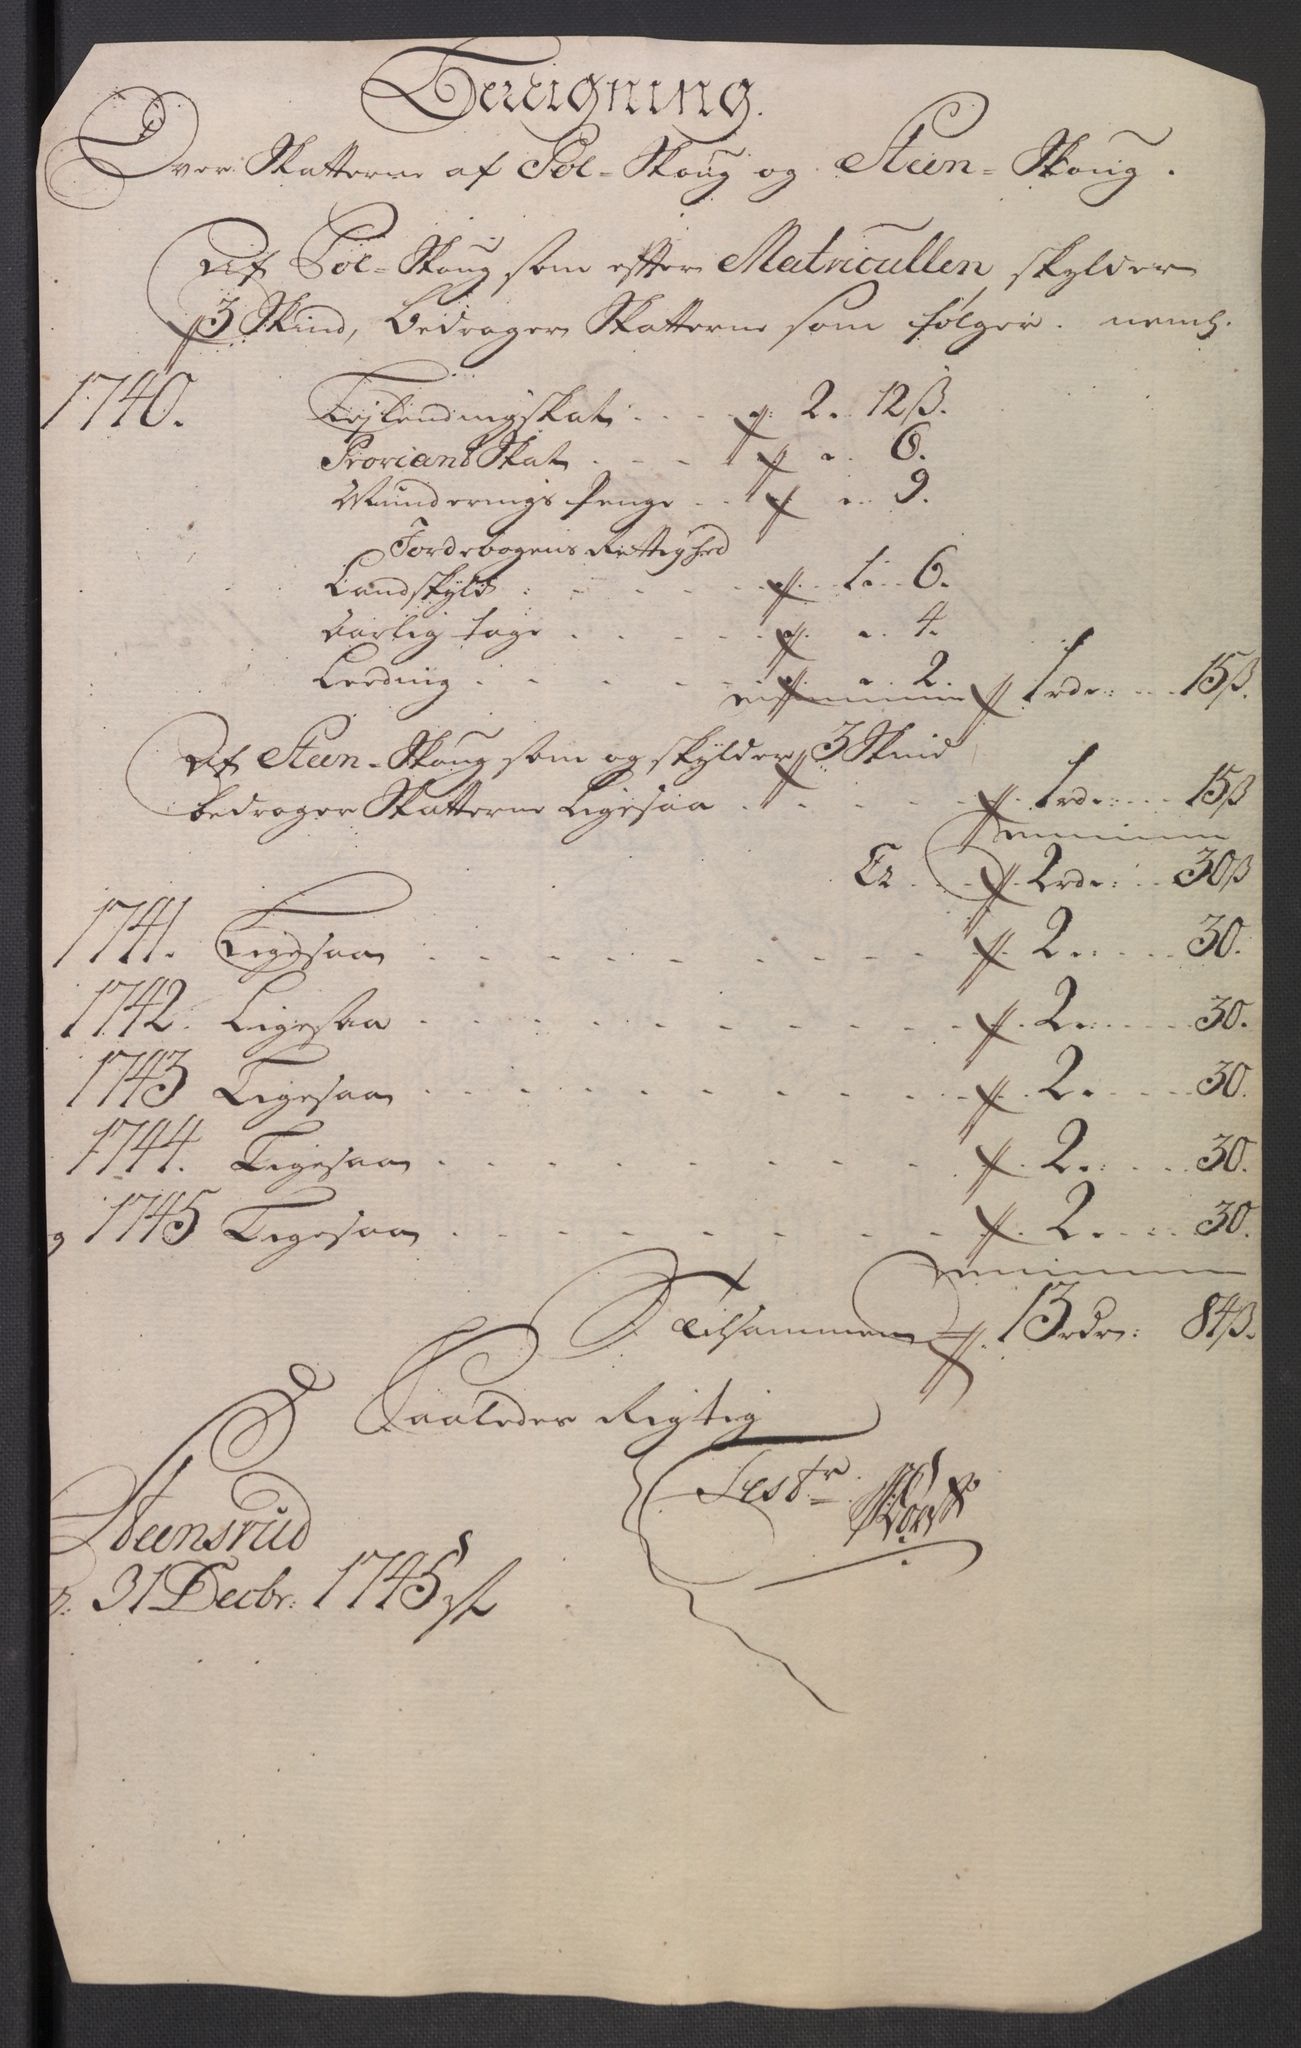 Beregning.
Over Skatterne af Pol-Skoug og Steen-Skoug.
Af Pol-Skoug som efter Matricullen skylder
3 Skind, bedrager Skatterne som følger. neml.
1740.
Leylendingskat . . . . 2. 12ß.
Proviant Skat . . . . 6.
Munderings Penge . . . 9.
Jordebogens Rettighed
Landskyld : . . . . 1. 6.
Aarlig tage . . . . . 4.
Leeding . . . . . 2. 1rdr: . . 15ß.
Af Steen-Skoug som og skylder 3 Skind
bedrager Skatterne Ligesaa . . . . . 1rdr: . . 15ß
Er . . . 2rdr: . . 30ß
1741. Ligesaa . . . . . 2. . . . 30.
1742. Ligesaa . . . . . 2. . . . 30.
1743 Ligesaa . . . . . 2. . . . 30.
1744. Ligesaa . . . . . 2. . . . 30.
g 1745 Ligesaa . . . . . 2. . . . 30.
Tilsammen 13rdr: 84ß.
Saaledes Rigtig
Testr
Steensrud
d: 31 Decbr: 1745